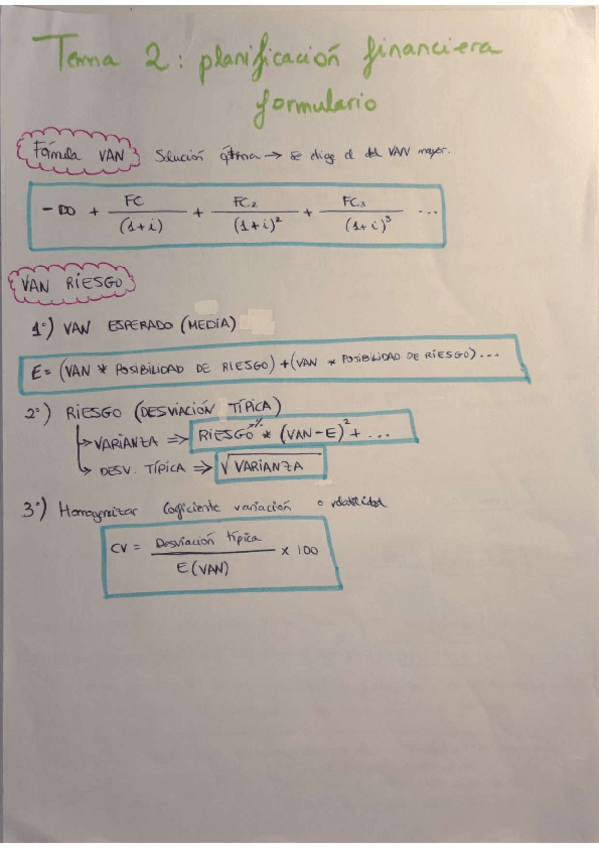 Tema 2: planificación financiera
formulario
Fórmula VAN Solución óptima → se elige el del VAN mayor.
- D0 + FC / (1+i) + FC2 / (1+i)² + FC3 / (1+i)³ ...
VAN RIESGO
1º) VAN ESPERADO (MEDIA)
E = (VAN * POSIBILIDAD DE RIESGO) + (VAN * POSIBILIDAD DE RIESGO) ...
2º) RIESGO (DESVIACIÓN TÍPICA)
→ VARIANZA ⇒ RIESGO % * (VAN-E)² + ...
→ DESV. TÍPICA ⇒ √VARIANZA
3º) Homogeneizar Coeficiente variación o relatividad
CV = Desviación típica / E(VAN) x 100